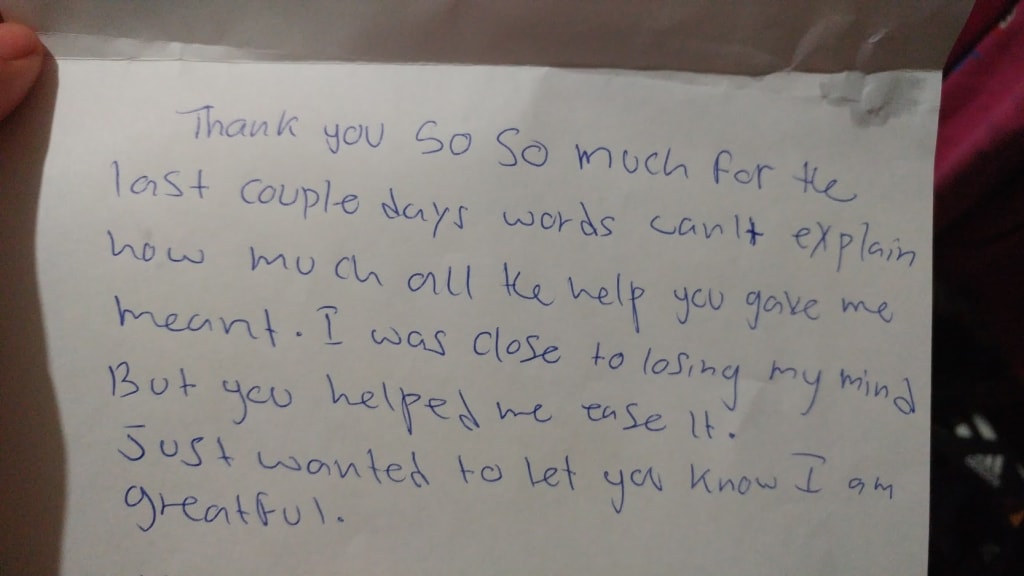 Thank you So So much for the
last couple days words can't explain
how much all the help you gave me
meant. I was close to losing my mind
But you helped me ease It.
Just wanted to Let you know I am
greatful.